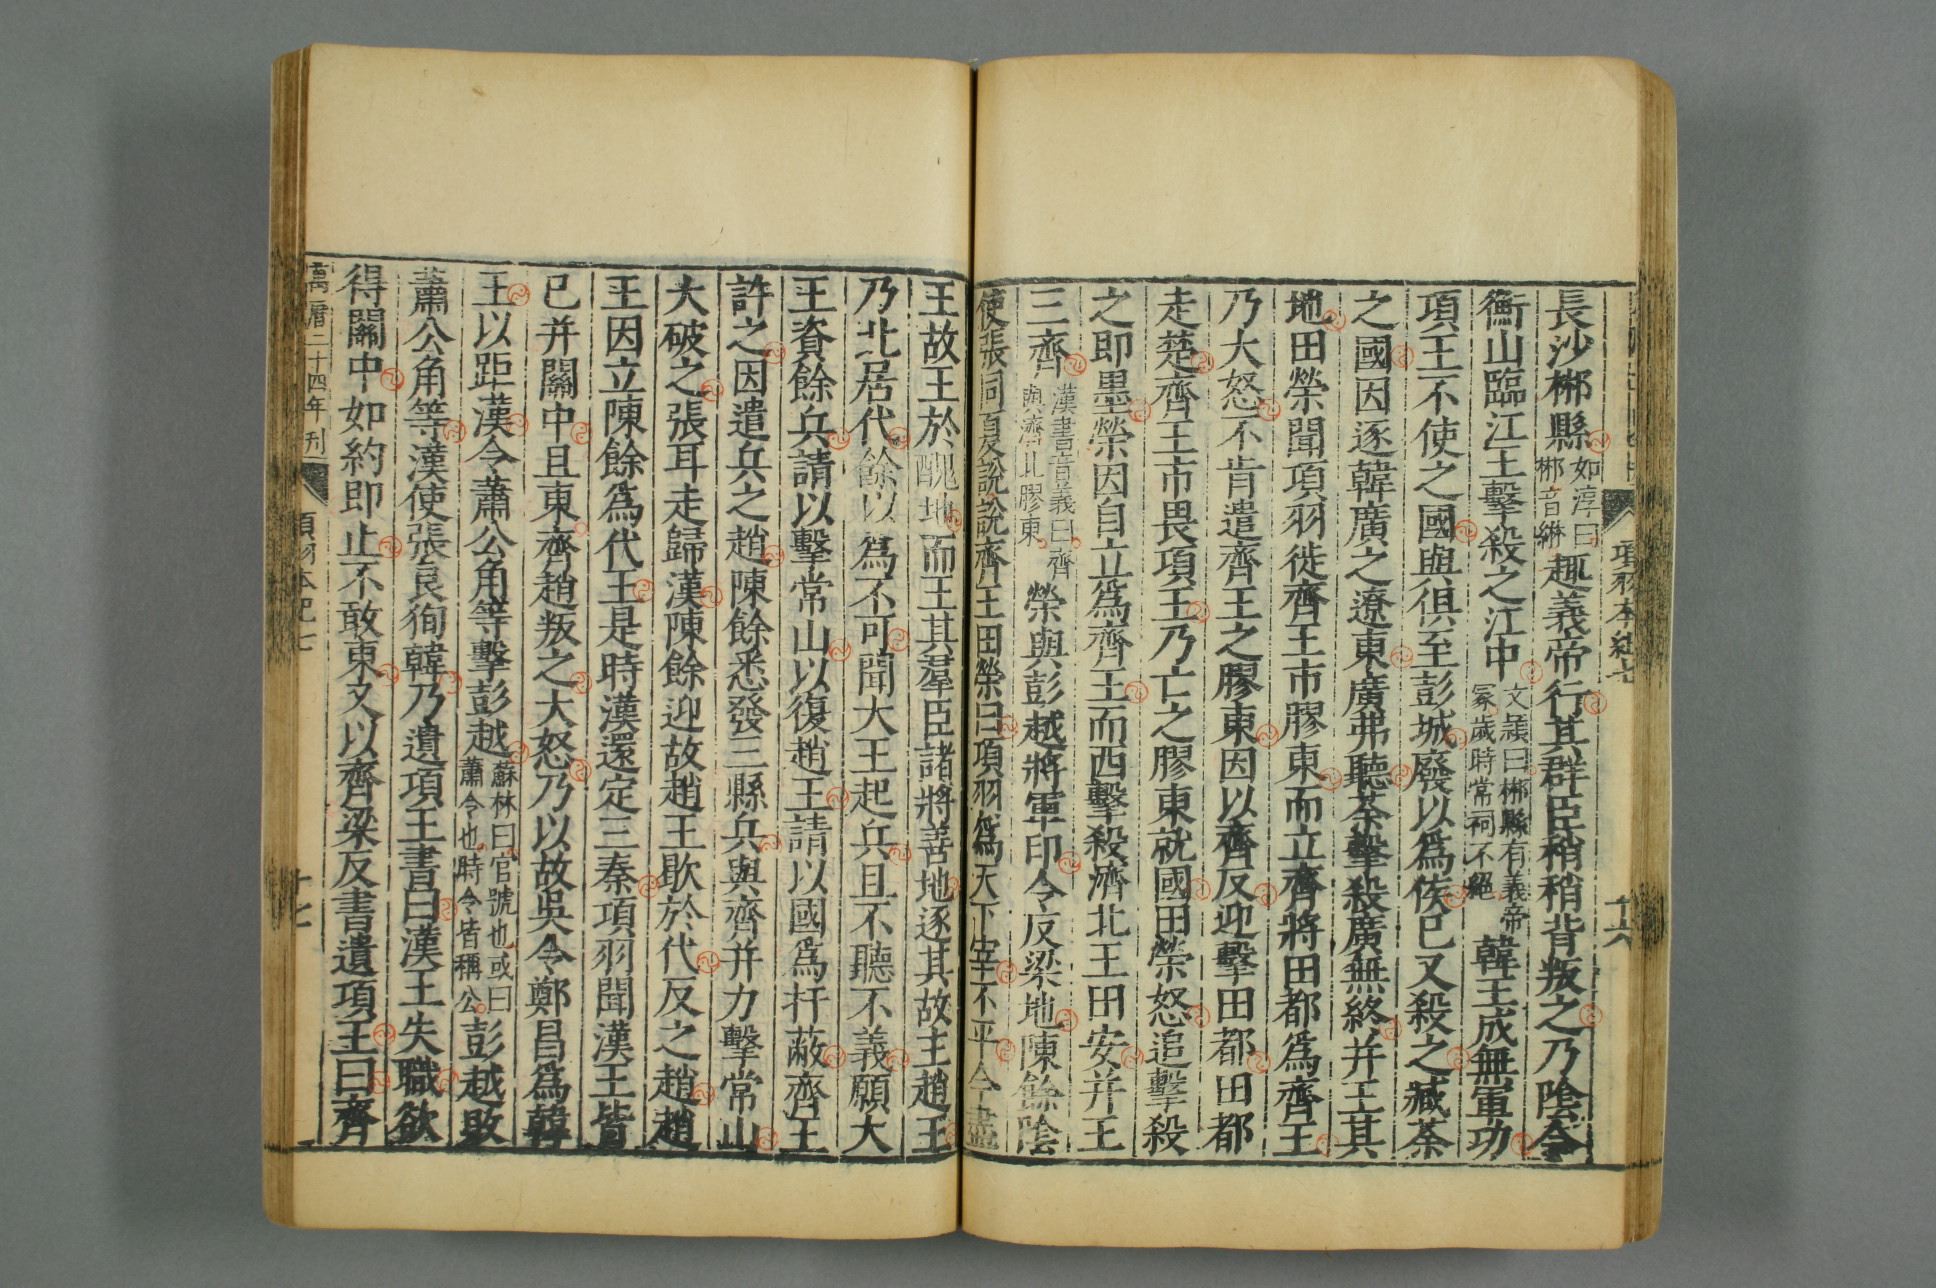 項羽本紀七
十六
長沙郴縣如淳曰郴音綝趣義帝行其群臣稍稍背叛之乃陰令
衡山臨江王擊殺之江中文穎曰郴縣有義帝冢歲時常祠不絕韓王成無軍功
項王不使之國與俱至彭城廢以為侯已又殺之臧荼
之國因逐韓廣之遼東廣弗聽荼擊殺廣無終并王其
地田榮聞項羽徙齊王市膠東而立齊將田都為齊王
乃大怒不肯遣齊王之膠東因以齊反迎擊田都田都
走楚齊王市畏項王乃亡之膠東就國田榮怒追擊殺
之即墨榮因自立為齊王而西擊殺濟北王田安并王
三齊漢書音義曰齊與濟北膠東榮與彭越將軍印令反梁地陳餘陰
使張同夏說說齊王田榮曰項羽為天下宰不平今盡
王故王於醜地而王其羣臣諸將善地逐其故主趙王
乃北居代餘以為不可聞大王起兵且不聽不義願大
王資餘兵請以擊常山以復趙王請以國為扞蔽齊王
許之因遣兵之趙陳餘悉發三縣兵與齊并力擊常山
大破之張耳走歸漢陳餘迎故趙王歇於代反之趙趙
王因立陳餘為代王是時漢還定三秦項羽聞漢王皆
已并關中且東齊趙叛之大怒乃以故吳令鄭昌為韓
王以距漢令蕭公角等擊彭越蘇林曰官號也或曰蕭令也時令皆稱公彭越敗
蕭公角等漢使張良徇韓乃遺項王書曰漢王失職欲
得關中如約即止不敢東又以齊梁反書遺項王曰齊
萬曆二十四年刊
項羽本紀七
十七